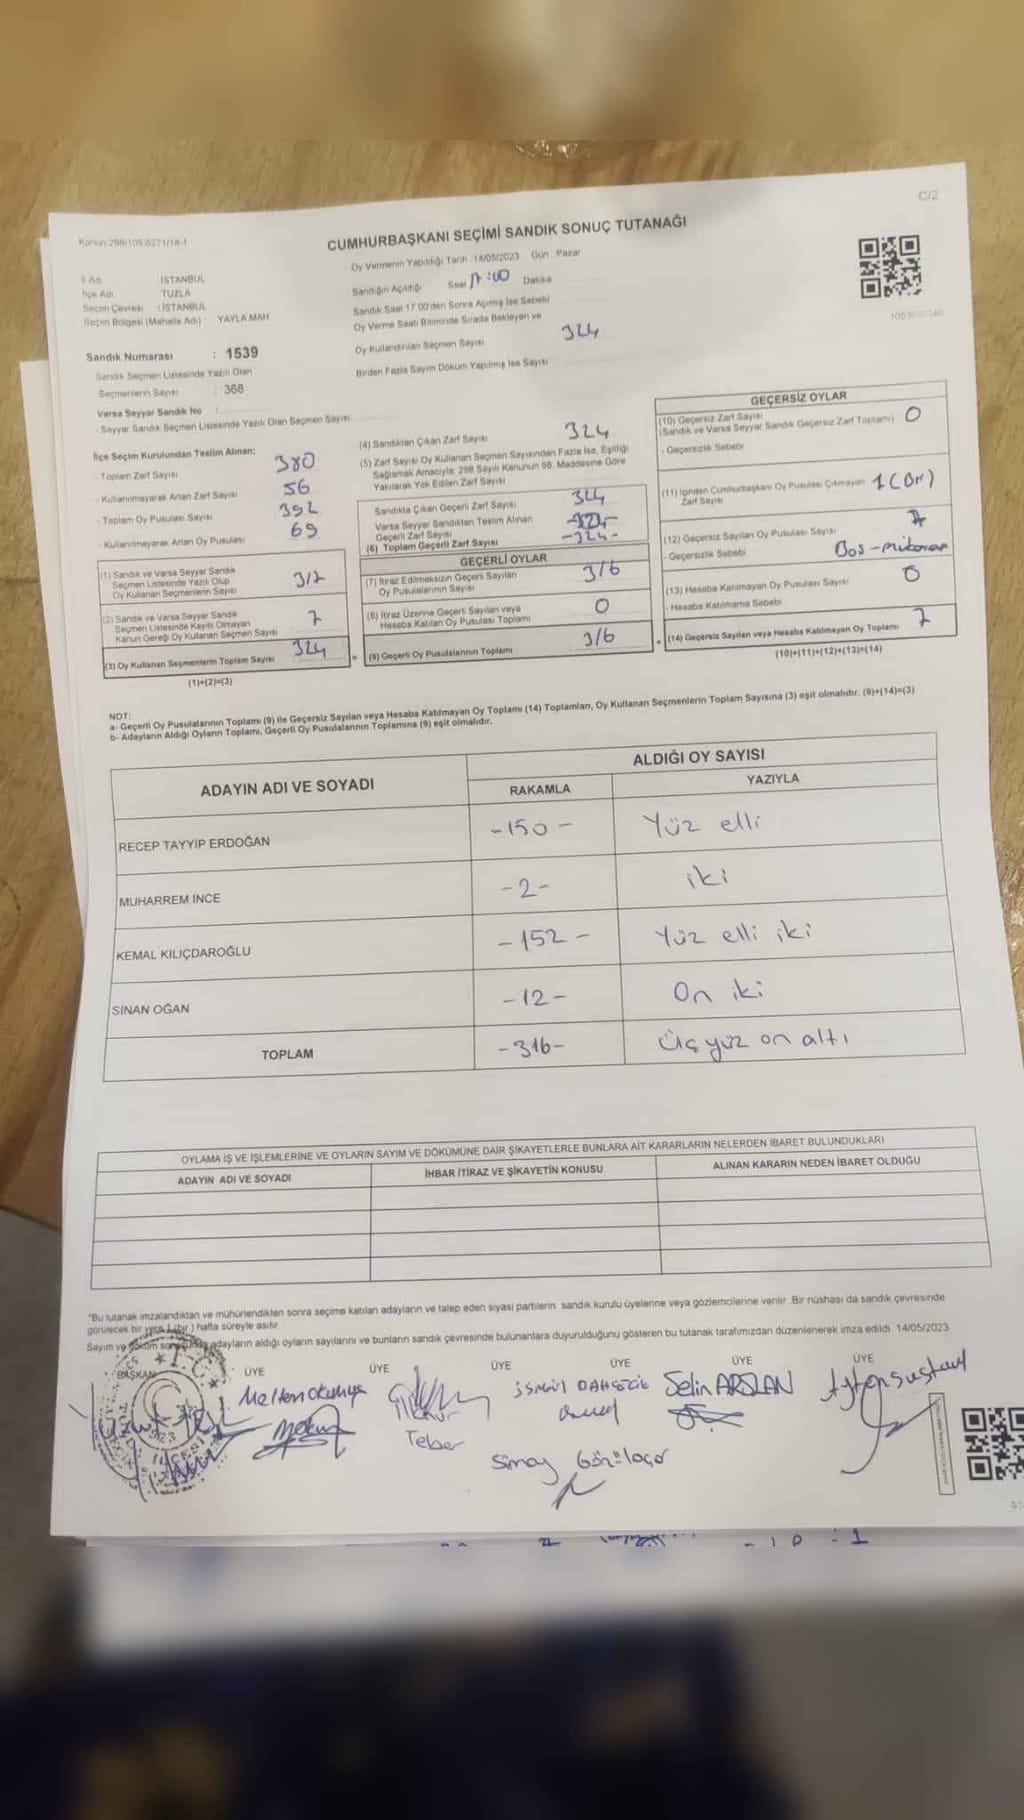 C/2
Kanun 298/105.6271/18-1
CUMHURBAŞKANI SEÇİMİ SANDIK SONUÇ TUTANAĞI
İl Adı İSTANBUL
İlçe Adı TUZLA
Seçim Çevresi : İSTANBUL
Seçim Bölgesi (Mahalle Adı) YAYLA MAH
Sandık Numarası : 1539
Sandık Seçmen Listesinde Yazılı Olan
Seçmenlerin Sayısı : 368
Varsa Seyyar Sandık No :
- Seyyar Sandık Seçmen Listesinde Yazılı Olan Seçmen Sayısı
Oy Vermenin Yapıldığı Tarih 14/05/2023 Gün : Pazar
Sandığın Açıldığı Saat 17:00 Dakika
Sandık Saat 17 00'den Sonra Açılmış İse Sebebi
Oy Verme Saati Bitiminde Sırada Bekleyen ve
Oy Kullandırılan Seçmen Sayısı 324
Birden Fazla Sayım Döküm Yapılmış İse Sayısı
İlçe Seçim Kurulundan Teslim Alınan;
- Toplam Zarf Sayısı 380
- Kullanılmayarak Artan Zarf Sayısı 56
- Toplam Oy Pusulası Sayısı 392
- Kullanılmayarak Artan Oy Pusulası 69
(1) Sandık ve Varsa Seyyar Sandık
Seçmen Listesinde Yazılı Olup
Oy Kullanan Seçmenlerin Sayısı 317
(2) Sandık ve Varsa Seyyar Sandık
Seçmen Listesinde Kayıtlı Olmayan
Kanun Gereği Oy Kullanan Seçmen Sayısı 7
(3) Oy Kullanan Seçmenlerin Toplam Sayısı 324
(1)+(2)=(3)
(4) Sandıktan Çıkan Zarf Sayısı 324
(5) Zarf Sayısı Oy Kullanan Seçmen Sayısından Fazla İse, Eşitliği
Sağlamak Amacıyla; 298 Sayılı Kanunun 98. Maddesine Göre
Yakılarak Yok Edilen Zarf Sayısı
Sandıkta Çıkan Geçerli Zarf Sayısı 324
Varsa Seyyar Sandıktan Teslim Alınan
Geçerli Zarf Sayısı
(6) Toplam Geçerli Zarf Sayısı -324-
GEÇERLİ OYLAR
(7) İtiraz Edilmeksizin Geçerli Sayılan
Oy Pusulalarının Sayısı 316
(8) İtiraz Üzerine Geçerli Sayılan veya
Hesaba Katılan Oy Pusulası Toplamı 0
= (9) Geçerli Oy Pusulalarının Toplamı 316
GEÇERSİZ OYLAR
(10) Geçersiz Zarf Sayısı
(Sandık ve Varsa Seyyar Sandık Geçersiz Zarf Toplamı) 0
- Geçersizlik Sebebi
(11) İçinden Cumhurbaşkanı Oy Pusulası Çıkmayan 1
Zarf Sayısı
(12) Geçersiz Sayılan Oy Pusulası Sayısı 7
- Geçersizlik Sebebi Boş -
(13) Hesaba Katılmayan Oy Pusulası Sayısı 0
- Hesaba Katılmama Sebebi
+ (14) Geçersiz Sayılan veya Hesaba Katılmayan Oy Toplamı 7
(10)+(11)+(12)+(13)=(14)
NOT:
a- Geçerli Oy Pusulalarının Toplamı (9) ile Geçersiz Sayılan veya Hesaba Katılmayan Oy Toplamı (14) Toplamları, Oy Kullanan Seçmenlerin Toplam Sayısına (3) eşit olmalıdır. (9)+(14)=(3)
b- Adayların Aldığı Oyların Toplamı, Geçerli Oy Pusulalarının Toplamına (9) eşit olmalıdır.
ADAYIN ADI VE SOYADI
ALDIĞI OY SAYISI
RAKAMLA YAZIYLA
RECEP TAYYİP ERDOĞAN -150- Yüz elli
MUHARREM İNCE -2- iki
KEMAL KILIÇDAROĞLU -152- Yüz elli iki
SİNAN OĞAN -12- On iki
TOPLAM -316- Üç yüz on altı
OYLAMA İŞ VE İŞLEMLERİNE VE OYLARIN SAYIM VE DÖKÜMÜNE DAİR ŞİKAYETLERLE BUNLARA AİT KARARLARIN NELERDEN İBARET BULUNDUKLARI
ADAYIN ADI VE SOYADI İHBAR İTİRAZ VE ŞİKAYETİN KONUSU ALINAN KARARIN NEDEN İBARET OLDUĞU
*Bu tutanak imzalandıktan ve mühürlendikten sonra seçime katılan adayların ve talep eden siyasi partilerin sandık kurulu üyelerine veya gözlemcilerine verilir .Bir nüshası da sandık çevresinde
görülecek bir yere 1(bir ) hafta süreyle asılır.
Sayım ve döküm adayların aldığı oyların sayılarını ve bunların sandık çevresinde bulunanlara duyurulduğunu gösteren bu tutanak tarafımızdan düzenlenerek imza edildi 14/05/2023
BAŞKAN ÜYE ÜYE ÜYE ÜYE ÜYE ÜYE
T.C.
Selin ARSLAN
Teber
Simay